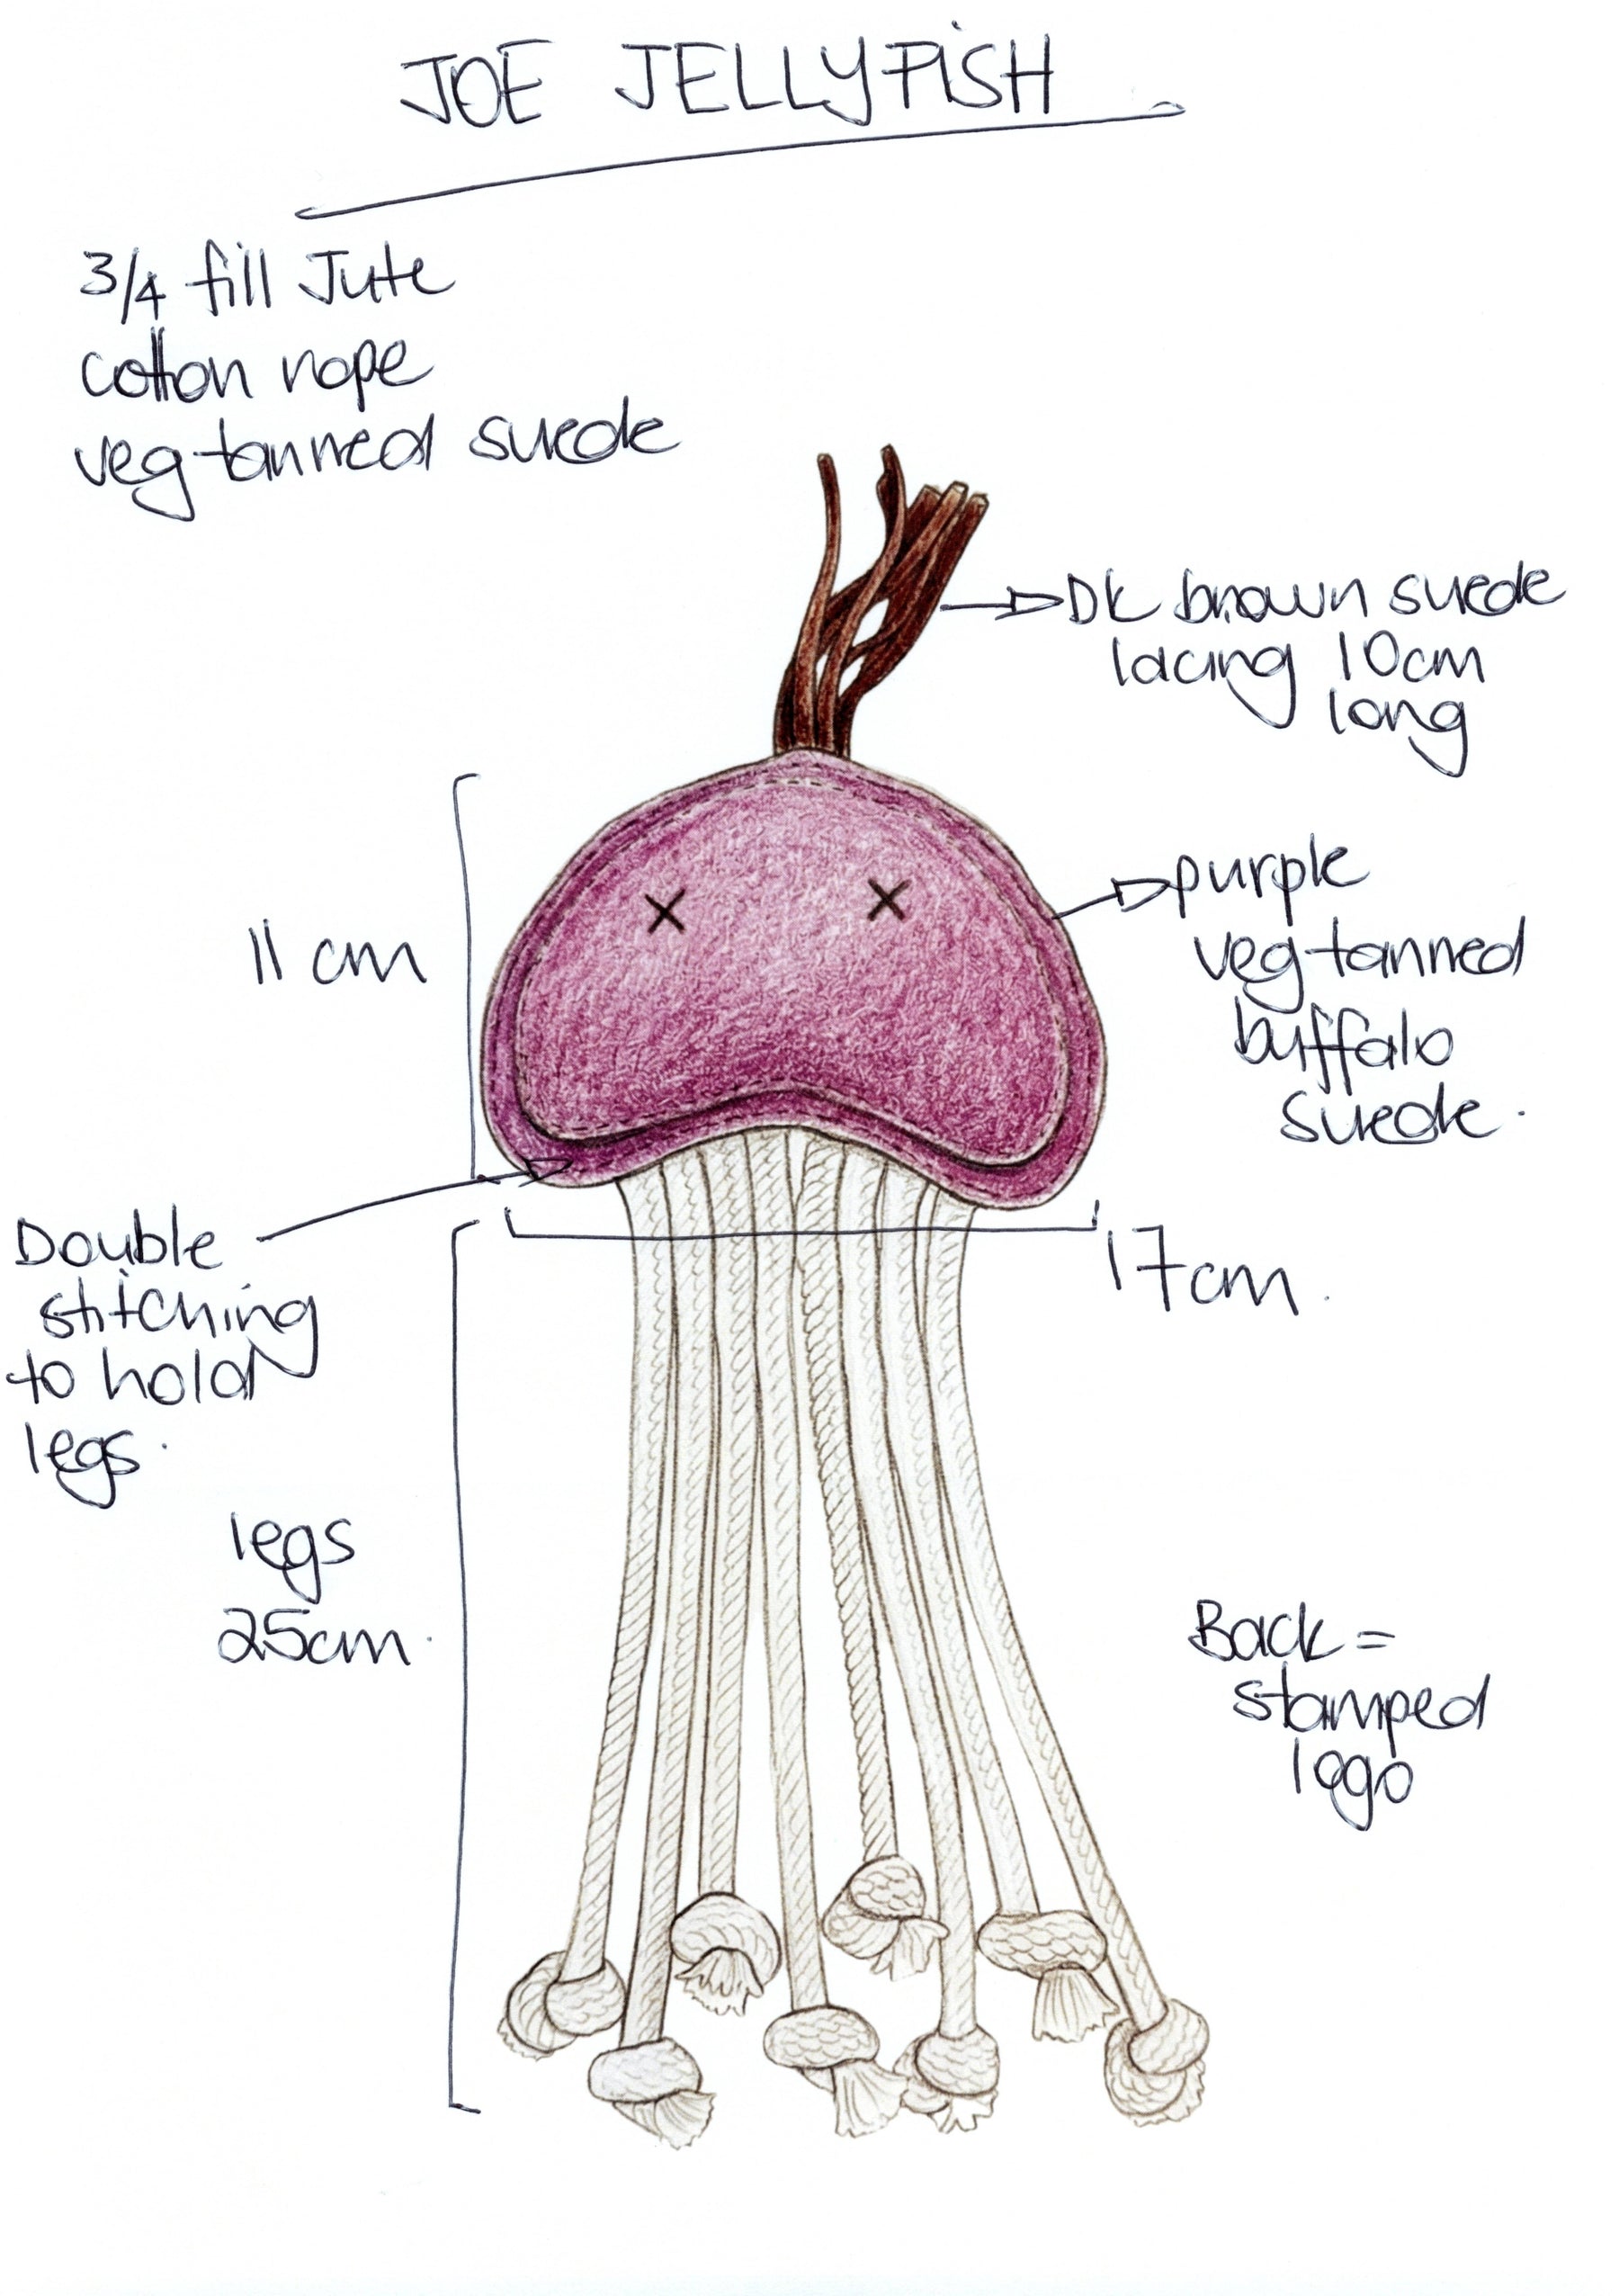 JOE JELLYFiSH
3/4 fill Jute
cotton rope
veg tanned suede
Dk brown suede
lacing 10cm
long
11 cm
purple
veg tanned
buffalo
suede.
Double
stitching
to hold
legs.
17cm.
legs
25cm.
Back =
stamped
logo